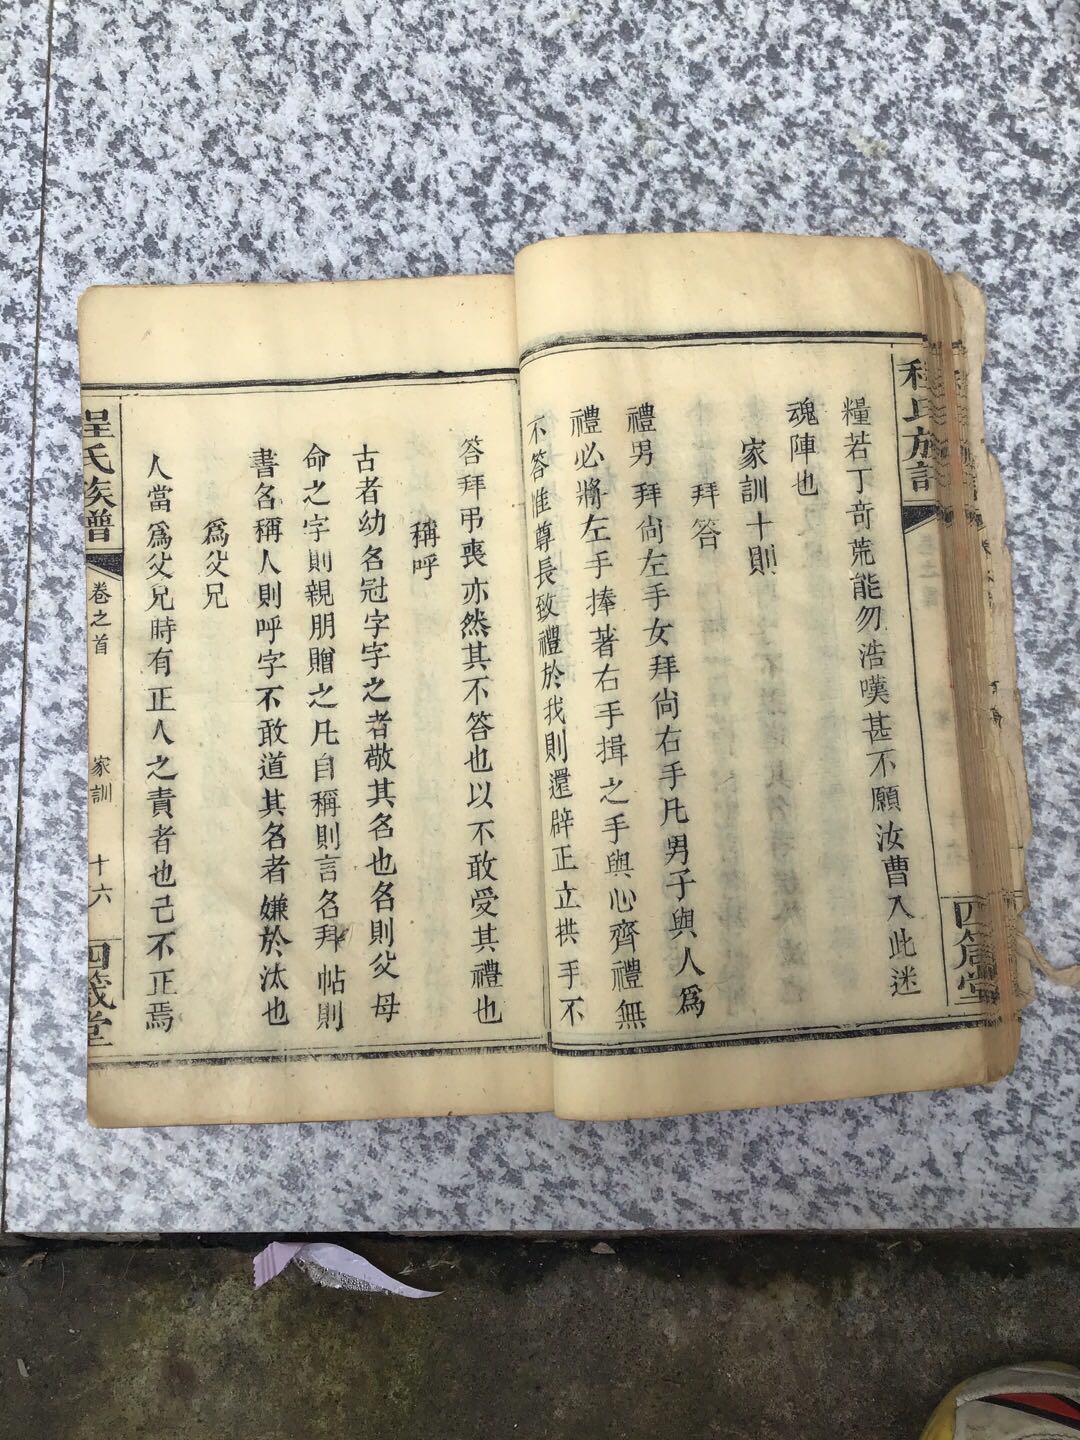 糧若丁奇荒能勿浩嘆甚不願汝曹入此迷
魂陣也
家訓十則
拜答
禮男拜尙左手女拜尙右手凡男子與人爲
禮必將左手捧著右手揖之手與心齊禮無
不答惟尊長致禮於我則還辟正立拱手不
答拜弔喪亦然其不答也以不敢受其禮也
稱呼
古者幼名冠字字之者敬其名也名則父母
命之字則親朋贈之凡自稱則言名拜帖則
書名稱人則呼字不敢道其名者嫌於汰也
爲父兄
人當爲父兄時有正人之責者也己不正焉
程氏族譜 卷之首 家訓 十六 四箴堂